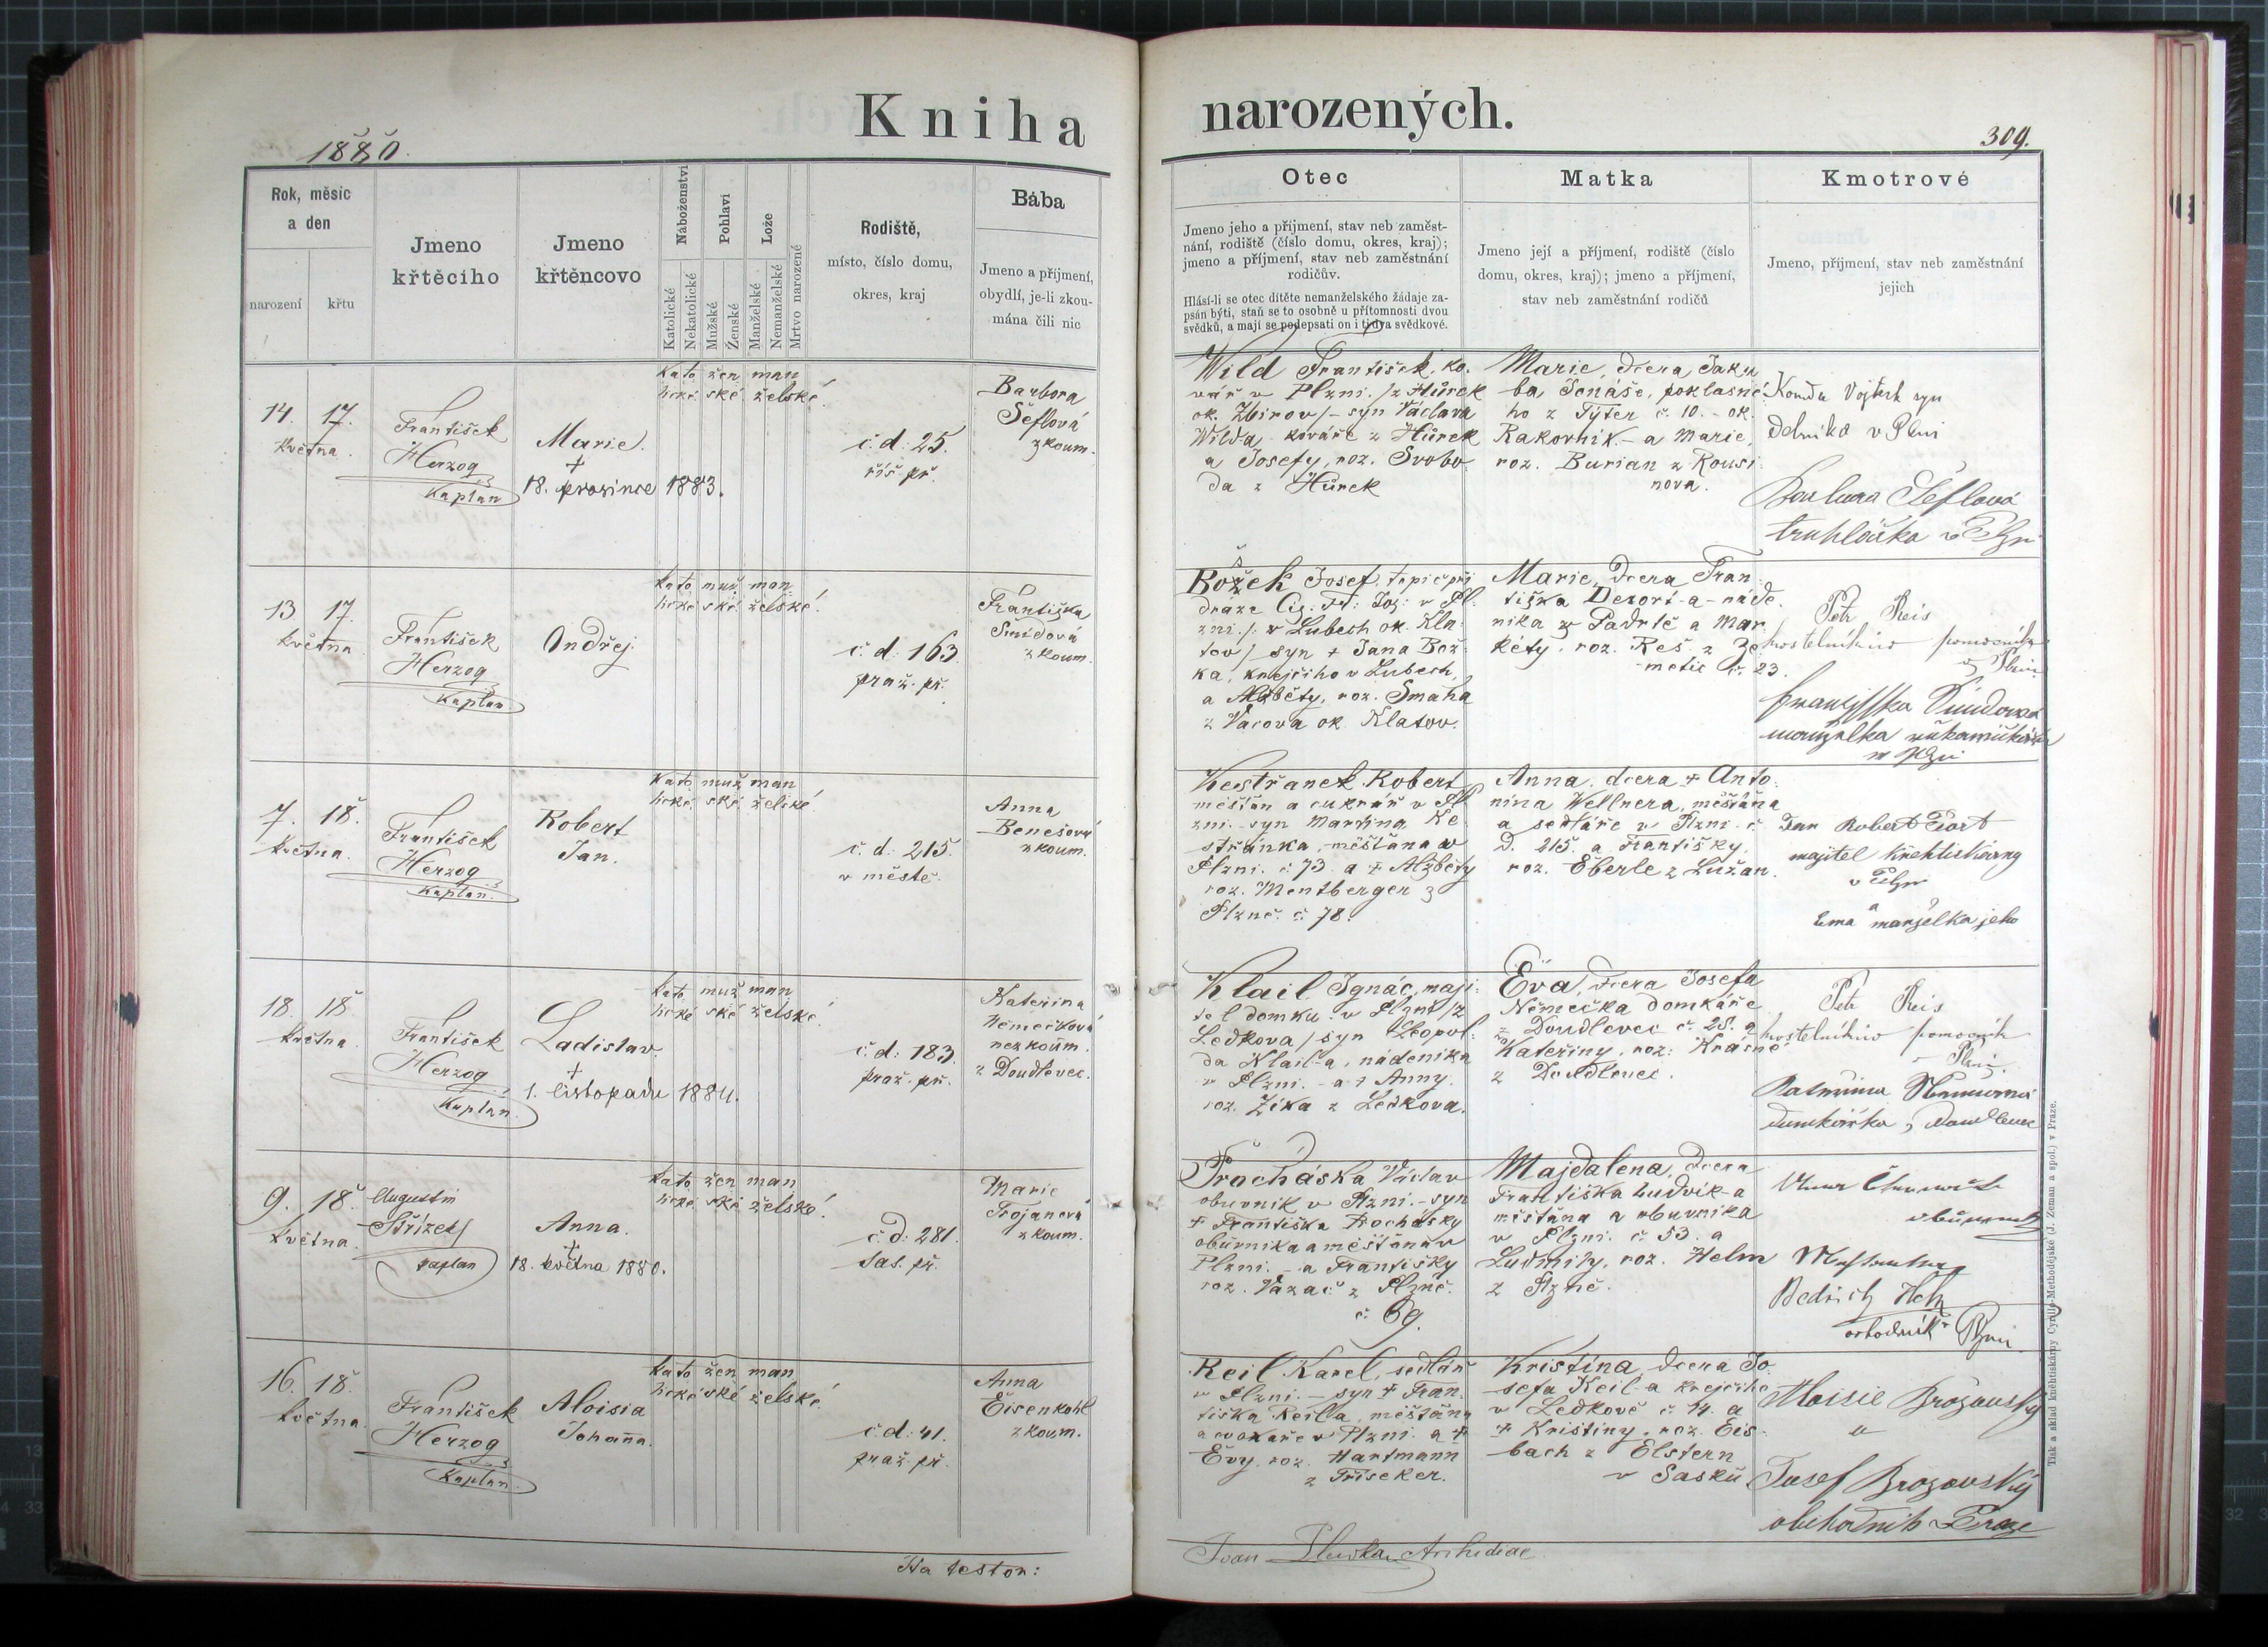 Kniha narozených.
1880.
309.
Rok, měsíc
a den
narození
křtu
Jmeno
křtěcího
Jmeno
křtěncovo
Náboženství
Pohlaví
Lože
Katolické
Nekatolické
Mužské
Ženské
Manželské
Nemanželské
Mrtvo narozené
Rodiště,
místo, číslo domu,
okres, kraj
Bába
Jmeno a příjmení,
obydlí, je-li zkou-
mána čili nic
Otec
Jmeno jeho a příjmení, stav neb zaměst-
nání, rodiště (číslo domu, okres, kraj);
jmeno a příjmení, stav neb zaměstnání
rodičův.
Hlásí-li se otec dítěte nemanželského žádaje za-
psán býti, staň se to osobně u přítomnosti dvou
svědků, a mají se podepsati on i ti dva svědkové.
Matka
Jmeno její a příjmení, rodiště (číslo
domu, okres, kraj); jmeno a příjmení,
stav neb zaměstnání rodičů
Kmotrové
Jmeno, příjmení, stav neb zaměstnání
jejich
14. 17.
května.
František
Herzog
Kaplan
Marie.
†
18. prosince 1883.
kato žen man
lické ské želské.
č. d. 25.
říš. př.
Barbora
Šeflová
zkoum.
Wild František, ko-
vář v Plzni. /z Hůrek
ok. Zbirov/ - syn Václava
Wilda kováře z Hůrek
a Josefy, roz. Svobo
da z Hůrek
Marie, dcera Jaku
ba Jonáše, poklasné-
ho z Týřer č. 10. - ok.
Rakovník - a Marie,
roz. Burian z Rousi
nova.
Vojtěch syn
Barbora Šeflová
truhlářka v Plzni
13 17.
května
František
Herzog
Kaplan
Ondřej.
kato muž man
lické ské želské.
č. d. 163.
praž. př.
Františka
Šmídová
zkoum.
Božek Josef, topič při
draze Cís. Fr. Jos. v Pl-
zni. /. z Lubech ok. Kla-
tov/ syn † Jana Bož-
ka, krejčího v Lubech,
a Alžběty, roz. Smaha
z Vacova ok. Klatov.
Marie, dcera Fran-
tiška Dezort-a - náde-
nika z Padrtě a Mar
kéty, roz. Reš z
metic č. 23.
Petr Reis
kostelníkův pomocník
v Plzni
manželka
v Plzni
7. 18.
května.
František
Herzog
Kaplan.
Robert
Jan.
kato muž man
lické ské želské.
č. d. 215.
v městě.
Anna
Benešová
zkoum.
Kestřanek Robert
měšťan a cukrář v Pl-
zni. - syn Martina Ke-
střánka, měšťana v
Plzni. č. 73. a † Alžběty
roz. Mentberger z
Plzně. č. 78.
Anna, dcera † Anto-
nina Wellnera, měšťana
a sedláře v Plzni č.
d. 215. a Františky
roz. Eberle z Lužan.
Jan Robert Port
majitel knihtiskárny
v Plzni
a
Ema manželka jeho
18. 18
května
František
Herzog
Kaplan.
Ladislav.
†
1. listopadu 1884.
kato muž man
lické ské želské.
č. d. 183.
praž. př.
Kateřina
Němečková
nezkoum.
z Doudlevec.
Klail Ignác, maji-
tel domku v Plzni /z
Ledkova/ syn Leopol-
da Klail-a, nádenika
v Plzni. - a † Anny.
roz. Zíka z Ledkova.
Eva, dcera Josefa
Němečka domkáře
z Doudlevec č. 28. a
Kateřiny, roz. Krásné
z Doudlevec.
Petr Reis
kostelníkův pomocník
v Plzni.
domkářka z Doudlevec
9. 18.
května.
Augustin
Střízek
kaplan
Anna.
†
18. května 1880.
kato žen man
lické ské želské.
č. d. 281.
sas. př.
Marie
Trojanová
zkoum.
Procháska Václav
obuvník v Plzni. - syn
† Františka Prochásky
obuvníka a měšťana v
Plzni. - a Františky
roz. Vazač z Plzně.
č. 69.
Majdalena, dcera
Františka Ludvík-a
měšťana a obuvníka
v Plzni. č. 53. a
Ludmily, roz. Helm
z Plzně.
Bedřich
obchodník v Plzni
16. 18.
května.
František
Herzog
Kaplan.
Aloisia
Johanna.
kato žen man
lické ské želské.
č. d. 41.
praž. př.
Anna
Eisenkohl
zkoum.
Keil Karel, sedlář
v Plzni. - syn † Fran-
tiška Keila, měšťana
a cvokaře v Plzni. a †
Evy, roz. Hartmann
z Triseker.
Kristina, dcera Jo-
sefa Keil-a krejčího
v Ledkově č. 14. a
† Kristiny, roz. Eis-
bach z Elstern
v Sasku
Aloisie Brožovský
a
Josef Brožovský
obchodník v Praze
Ita testor:
Tisk a sklad knihtiskárny Cyrillo-Methodějské (J. Zeman a spol.) v Praze.